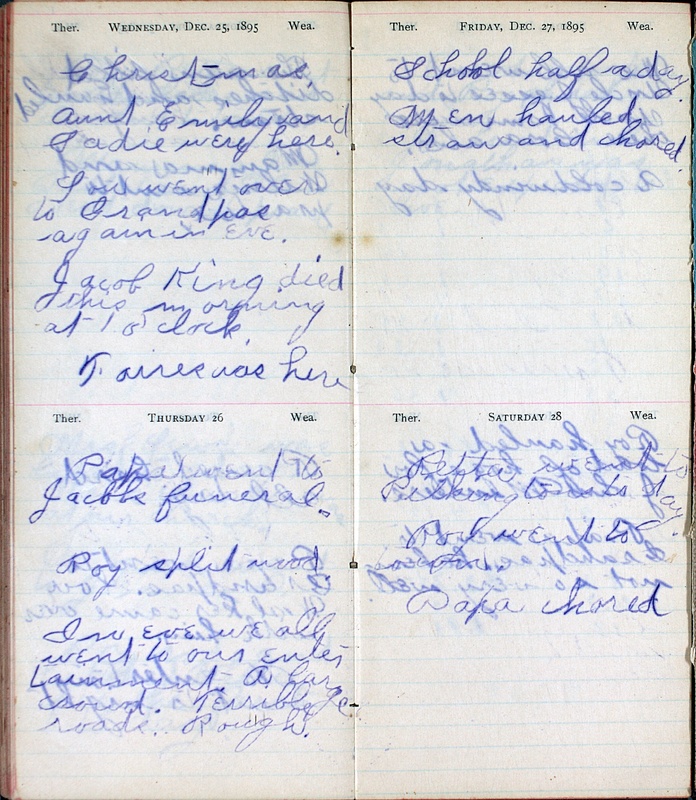 Ther. Wednesday, Dec. 25, 1895 Wea.
Christmas,
Aunt Emily and
Sadie were here.
I went over
to Grandpas
again in Eve.
Jacob King died
this morning
at 1 o'clock,
was here
Ther. Thursday 26 Wea.
Papa went to
Jacobs funeral.
Roy split wood.
In eve we all
went to our enter
tainment. A large
crowd. Terrible
roads. Rough.
Ther. Friday, Dec. 27, 1895 Wea.
School half a day.
Men hauled
straw and chored.
Ther. Saturday 28 Wea.
went to
to day.
went to
Papa chored